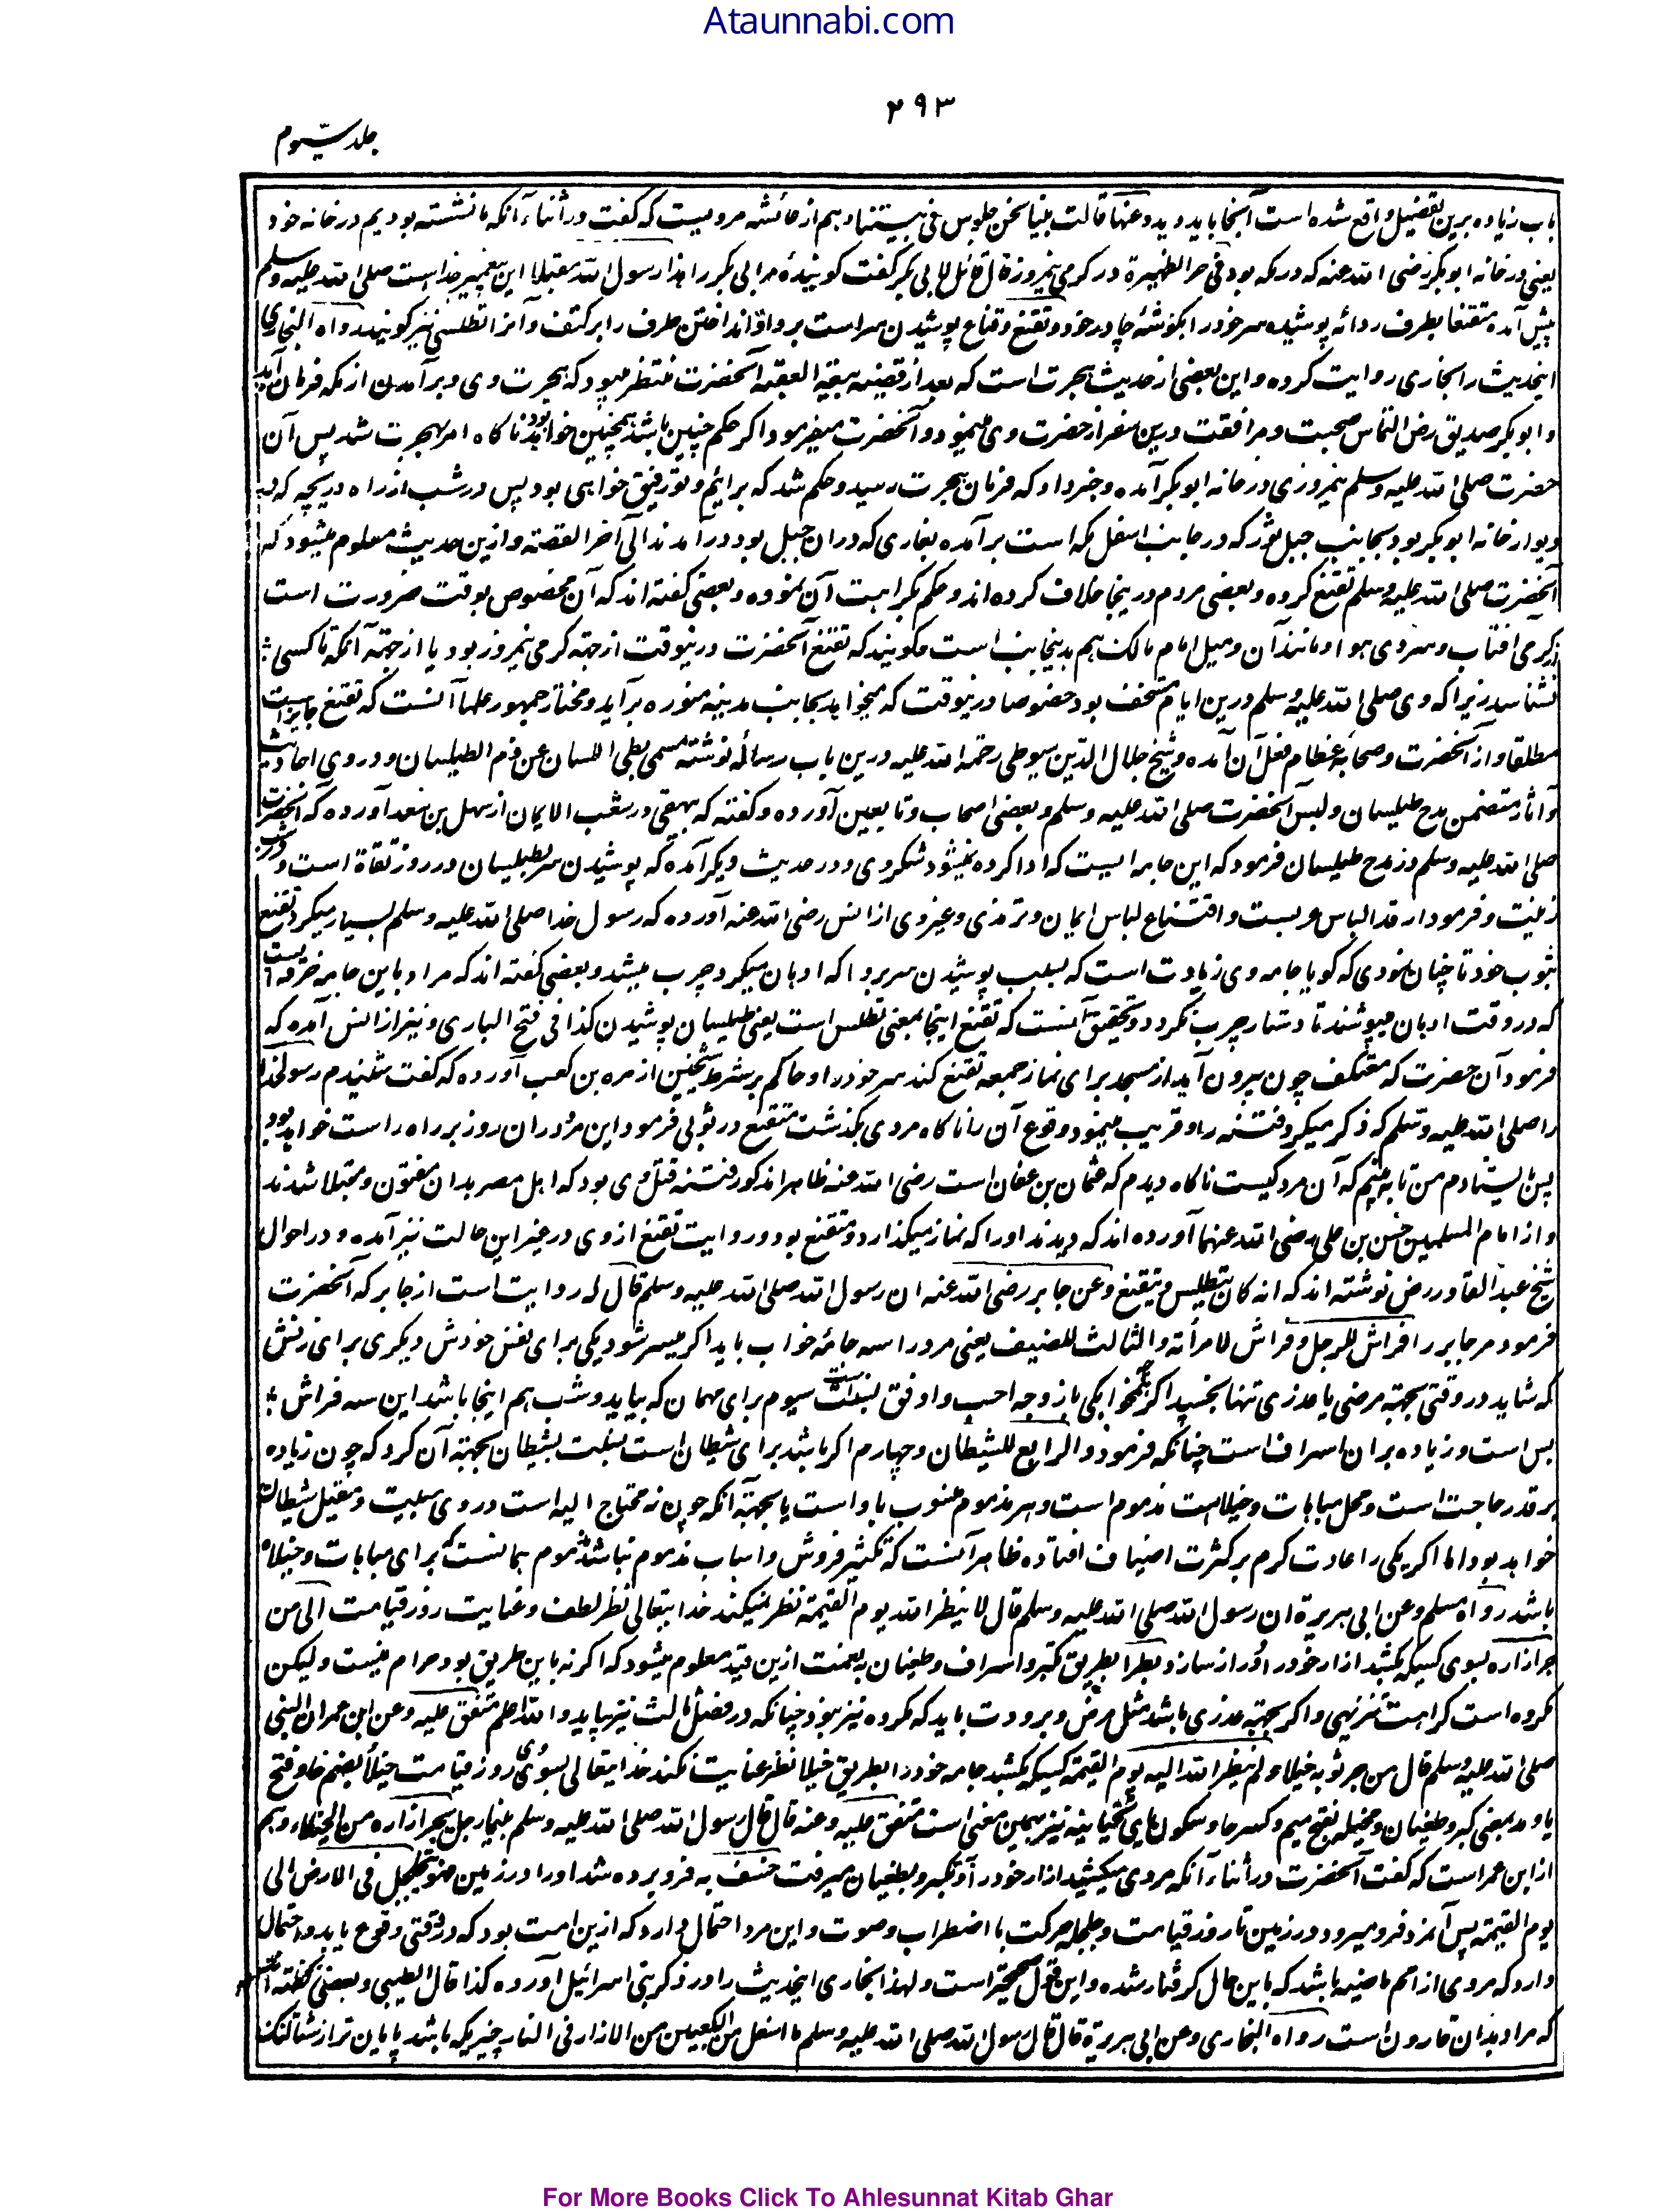 Ataunnabi.com
۲۹۳
جلد سیّوم
باب زیاده برین تفضیل واقع شده است آنجا باید دید وعنها قالت بینا نحن جلوس فی بیتنا وهم از عائشه مرویست که گفت در اثناء آنکه ما نشسته بودیم در خانه خود
یعنی در خانه ابو بکر رضی الله عنه که در مکه بود فی حر الظهیرة در گرمی نیمروز قال قائل لابی بکر گفت گوینده مر ابی بکر را هذا رسول الله مقبلا این پیغمبر خداست صلی الله علیه وسلم
پیش آمده متقنعا بطرف ردائه پوشیده سر خود را بگوشهٔ چادر خود وتقنع وقناع پوشیدن سر است بردا و انداختن طرف را بر کتف وآنرا تطلس نیز گویند رواه البخاری
اینحدیث را بخاری روایت کرده واین بعضی از حدیث هجرت است که بعد از قضیه بیعة العقبه آنحضرت منتظر میبود که هجرت وی وبرآمدن از مکه فرمان آید
وابو بکر صدیق رض التماس صحبت ومرافقت درین سفر از حضرت وی مینمود وآنحضرت میفرمود اگر حکم چنین باشد همچنین خواهد بود ناگاه امر بهجرت شد پس آن
حضرت صلی الله علیه وسلم نیمروزی در خانه ابو بکر آمده وخبر داد که فرمان هجرت رسید وحکم شد که برائیم وتو رفیق خواهی بود پس در شب از راه دریچه که در
دیوار خانه ابو بکر بود بجانب جبل ثور که در جانب اسفل مکه است برآمده بغاری که در ان جبل بود درآمدند الی اخر القصة وازین حدیث معلوم میشود که
آنحضرت صلی الله علیه وسلم تقنع کرده وبعضی مردم درینجا خلاف کرده اند وحکم بکراهت آن نموده وبعضی گفته اند که آن مخصوص بوقت ضرورت است
گرمی آفتاب وسردی هوا ومانند آن ومیل امام مالک هم بدینجانب است ومیگویند که تقنع آنحضرت درینوقت از جهة گرمی نیمروز بود یا از جهة آنکه تا کسی
نشناسد زیرا که وی صلی الله علیه وسلم درین ایام متخفف بود خصوصا درینوقت که میخواهد بجانب مدینه منوره برآید ومختار جمهور علما آنست که تقنع جایز است
مطلقا واز آنحضرت وصحابهٔ عظام فعل آن آمده وشیخ جلال الدین سیوطی رحمة الله علیه درین باب رساله نوشته مسمی بطی اللسان عن ذم الطیلسان ودر وی احادیث
وآثار متضمن مدح طیلسان ولبس آنحضرت صلی الله علیه وسلم وبعضی اصحاب وتابعین آورده وگفته که بیهقی در شعب الایمان از سهل بن سعد آورده که آنحضرت
صلی الله علیه وسلم در مدح طیلسان فرمود که این جامه ایست که ادا کرده نمیشود شکر وی ودر حدیث دیگر آمده که پوشیدن سر بطیلسان در روز تقاة است ودر شب
زینت وفرمود ارتدا لباس عربست واقتناع لباس ایمان وترمذی وغیر وی از انس رضی الله عنه آورده که رسول خدا صلی الله علیه وسلم بسیار میکرد تقنع
بثوب خود تا چنان نمودی که گویا جامه وی زیات است که بسبب پوشیدن سر بردا که ادهان میکرد چرب میشد وبعضی گفته اند که مراد باین جامه خرقه است
که در وقت ادهان میپوشند تا دستار چرب نگردد وتحقیق آنست که تقنع اینجا بمعنی تطلس است یعنی طیلسان پوشیدن کذا فی فتح الباری ونیز از انس آمده که
فرمود آن حضرت که معتکف چون بیرون آید از مسجد برای نماز جمعه تقنع کند سر خود را وحاکم بر شرط شیخین از مره بن کعب آورده که گفت شنیدم رسولخدا
را صلی الله علیه وسلم که ذکر میکرد فتنه را وقریب مینمود وقوع آن را ناگاه مردی بگذشت متقنع در ثوبی فرمود این مرد در ان روز بر راه راست خواهد بود
پس ایستادم من تا ببینم که آن مرد کیست ناگاه دیدم که عثمان بن عفان است رضی الله عنه ظاهرا مذکور فتنه قتل وی بود که اهل مصر بدان مفتون ومبتلا شدند
واز امام المسلمین حسن بن علی رضی الله عنهما آورده اند که دیدند او را که نماز میگذارد ومتقنع بود وروایت تقنع از وی در غیر این حالت نیز آمده ودر احوال
شیخ عبد القادر رض نوشته اند که انه کان یتطیلس ویتقنع وعن جابر رضی الله عنه ان رسول الله صلی الله علیه وسلم قال له روایت است از جابر که آنحضرت
فرمود مر جابر را فراش للرجل وفراش لامرأته والثالث للضیف یعنی مرد را سه جامهٔ خواب باید اگر میسر شود یکی برای نفس خودش ودیگری برای زنش
که شاید در وقتی بجهة مرضی یا عذری تنها بخسپد اگرچه همخوابگی با زوجه احب واوفق بسنت است سیوم برای مهمان که بیاید وشب هم اینجا باشد این سه فراش
بس است وزیاده بران اسراف است چنانکه فرمود والرابع للشیطان وچهارم اگر باشد برای شیطان است نسبت بشیطان بجهة آن کرد که چون زیاده
بر قدر حاجت است ومحل مباهات وخیلا است مذموم است وهر مذموم منسوب باوست یا بجهة آنکه چون نه محتاج الیه است در وی مبیت ومقیل شیطان
خواهد بود اما اگر یکی را عادت کرم بر کثرت اضیاف افتاده ظاهر آنست که تکثیر فروش واسباب مذموم نباشد مذموم همانست که برای مباهات وخیلاء
باشد رواه مسلم وعن ابی هریرة ان رسول الله صلی الله علیه وسلم قال لا ینظر الله یوم القیمة نظر نمیکند خدایتعالی نظر لطف وعنایت روز قیامت الی من
جر ازاره بسوی کسیکه بکشد ازار خود را ودراز سازد بطرا بطریق تکبر واسراف وطغیان به نعمت ازین قید معلوم میشود که اگر نه باین طریق بود حرام نیست ولیکن
مکروه است کراهت تنزیهی واگر بجهة عذری باشد مثل مرض وبرودت باید که مکروه نیز نبود چنانکه در فصل ثالث نیز بیاید والله اعلم متفق علیه وعن ابن عمر ان النبی
صلی الله علیه وسلم قال من جر ثوبه خیلاء لم ینظر الله الیه یوم القیمة کسیکه بکشد جامه خود را بطریق خیلا نظر عنایت نکند خدایتعالی بسوی وی روز قیامت خیلاء بضم خا وفتح
یا ومد بمعنی کبر وطغیان ومخیله بفتح میم وکسر خا وسکون یای تحتانیه نیز بهمین معنی است متفق علیه وعنه قال قال رسول الله صلی الله علیه وسلم بینما رجل یجر ازاره من الخیلاء وهم
از ابن عمر است که گفت آنحضرت در اثناء آنکه مردی میکشید ازار خود را وتکبر وبطغیان میرفت خسف به فرو برده شد او را در زمین فهو یتجلجل فی الارض الی
یوم القیمة پس آنمرد فرو میرود در زمین تا روز قیامت وجلجله حرکت با اضطراب وصوت واین مرد احتمال دارد که ازین امت بود که در وقتی وقوع یابد واحتمال
دارد که مردی از امم ماضیه باشد که باین حال گرفتار شده واین قول صحیح تر است ولهذا بخاری اینحدیث را در ذکر بنی اسرائیل آورده کذا قال الطیبی وبعضی گفته اند
که مراد بدان قارون است رواه البخاری وعن ابی هریرة قال قال رسول الله صلی الله علیه وسلم ما اسفل من الکعبین من الازار فی النار چیزیکه باشد پایان تر از شتالنگ
For More Books Click To Ahlesunnat Kitab Ghar